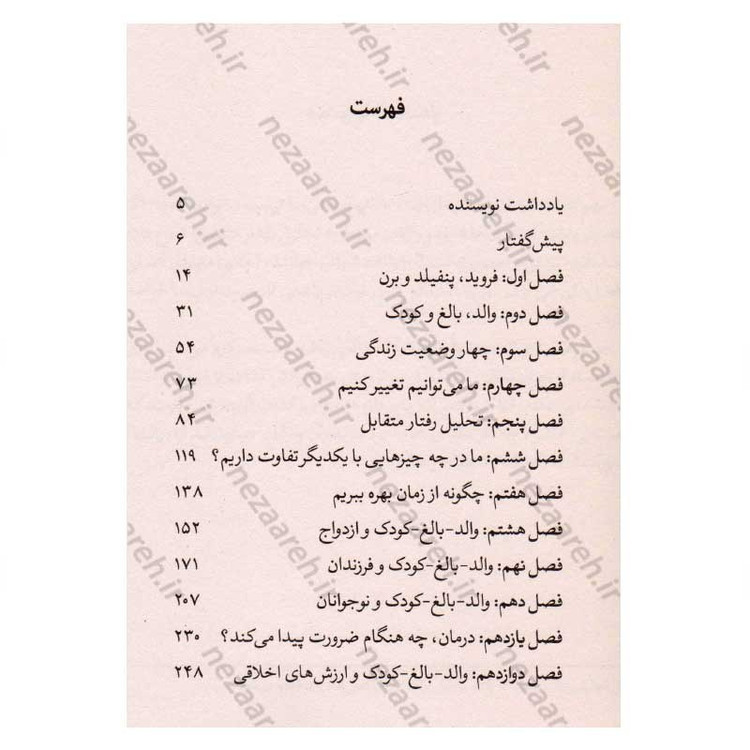 فهرست
یادداشت نویسنده ۵
پیش‌گفتار ۶
فصل اول: فروید، پنفیلد و برن ۱۴
فصل دوم: والد، بالغ و کودک ۳۱
فصل سوم: چهار وضعیت زندگی ۵۴
فصل چهارم: ما می‌توانیم تغییر کنیم ۷۳
فصل پنجم: تحلیل رفتار متقابل ۸۴
فصل ششم: ما در چه چیزهایی با یکدیگر تفاوت داریم؟ ۱۱۹
فصل هفتم: چگونه از زمان بهره ببریم ۱۳۸
فصل هشتم: والد-بالغ-کودک و ازدواج ۱۵۲
فصل نهم: والد-بالغ-کودک و فرزندان ۱۷۱
فصل دهم: والد-بالغ-کودک و نوجوانان ۲۰۷
فصل یازدهم: درمان، چه هنگام ضرورت پیدا می‌کند؟ ۲۳۰
فصل دوازدهم: والد-بالغ-کودک و ارزش‌های اخلاقی ۲۴۸
nezaareh.ir